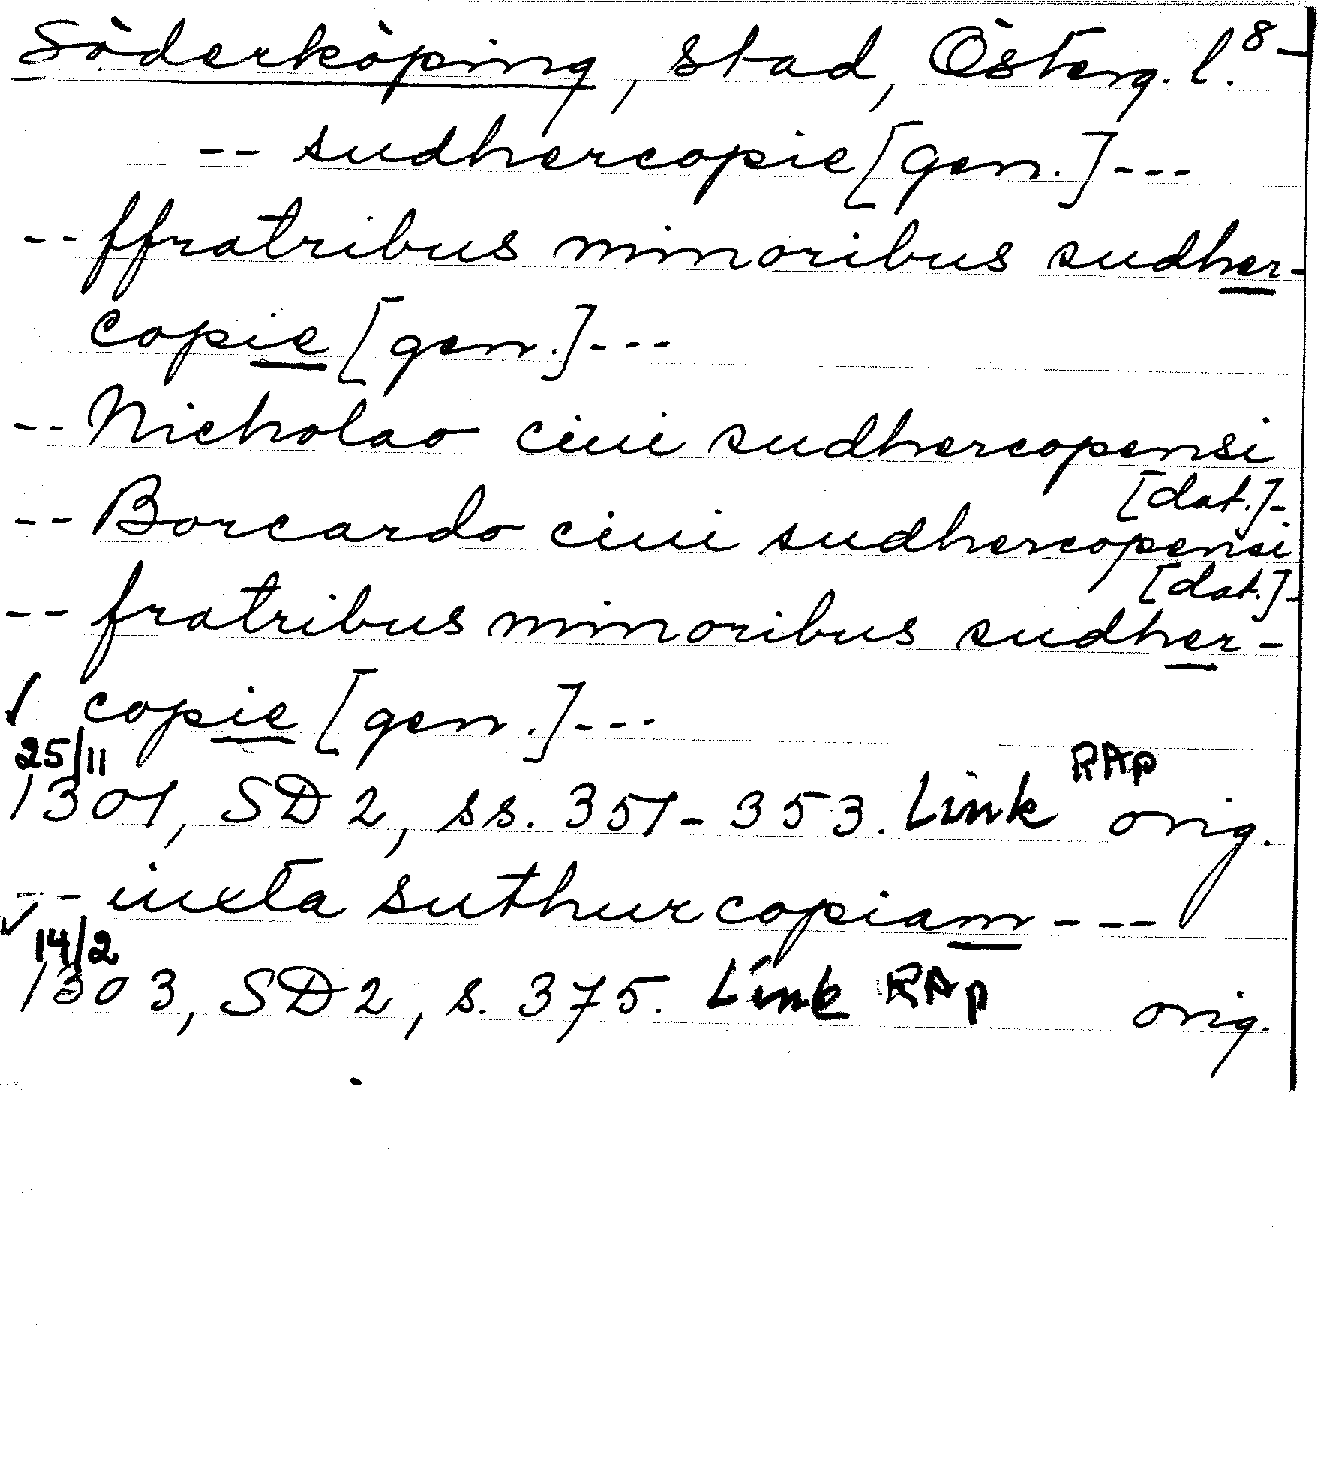 Söderköping, stad, Österg. l. 8
-- sudhercopie [gen.] ---
-- ffratribus minoribus sudher-
copie [gen.] ---
-- Nicholao ciui sudhercopensi
[dat.] -
-- Borcardo ciui sudhercopensi
[dat.] -
-- fratribus minoribus sudher-
copie [gen.] ---
25/11 RAp
1301, SD 2, ss. 351-353. Link orig.
-- iuxta suthurcopiam ---
14/2
1303, SD 2, s. 375. Link RAp orig.